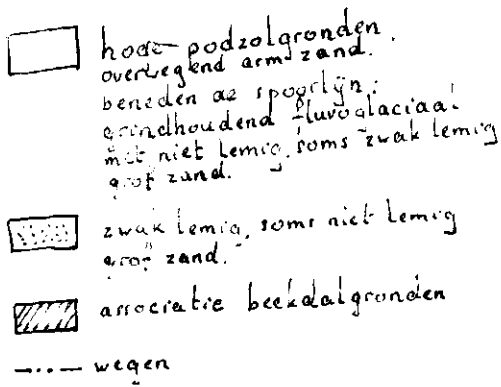 hode-podzolgronden.
overwegend arm zand.
beneden de spoorlijn:
grindhoudend fluvoglaciaal
met niet lemig, soms zwak lemig
grof zand.
zwak lemig, soms niet lemig
grof zand.
associatie beekdalgronden
wegen